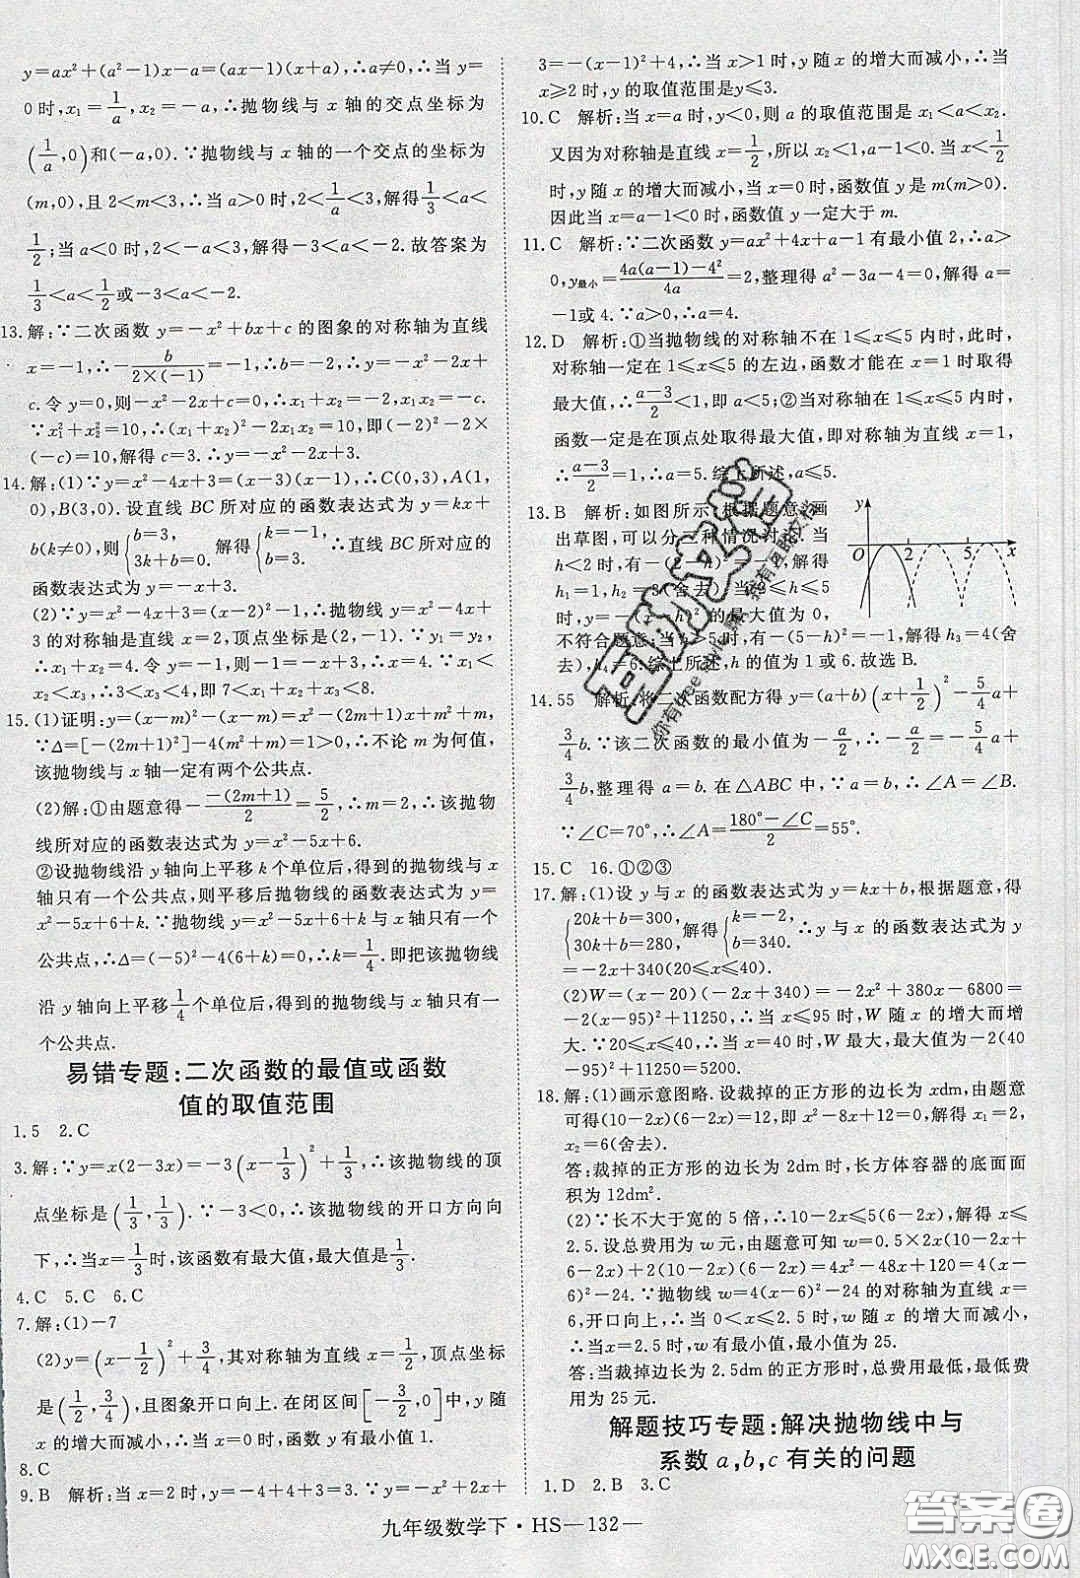 y=ax²+(a²-1)x-a=(ax-1)(x+a),∴a≠0,∴当 y=
0时,x₁=1/a,x₂=-a,∴抛物线与 x 轴的交点坐标为
(1/a,0)和(-a,0).∵抛物线与 x 轴的一个交点的坐标为
(m,0),且 2<m<3,∴当a>0时,2<1/a<3,解得1/3<a<
1/2;当 a<0 时,2<-a<3,解得-3<a<-2.故答案为
1/3<a<1/2或-3<a<-2.
13.解:∵二次函数 y=-x²+bx+c 的图象的对称轴为直线
x=-1,∴-b/(2×(-1))=-1,∴b=-2,∴y=-x²-2x+
c.令 y=0,则-x²-2x+c=0,∴x₁+x₂=-2,x₁x₂=-c.
∵x₁²+x₂²=10,∴(x₁+x₂)²-2x₁x₂=10,即(-2)²-2×
(-c)=10,解得 c=3.∴y=-x²-2x+3.
14.解:(1)∵y=x²-4x+3=(x-3)(x-1),∴C(0,3),A(1,
0),B(3,0).设直线 BC 所对应的函数表达式为 y=kx+
b(k≠0),则{b=3, 3k+b=0.解得{k=-1, b=3,∴直线 BC 所对应的
函数表达式为 y=-x+3.
(2)∵y=x²-4x+3=(x-2)²-1,∴抛物线 y=x²-4x+
3 的对称轴是直线 x=2,顶点坐标是(2,-1).∵y₁=y₂,
∴x₁+x₂=4.令 y=-1,则由 y=-x+3,得 x=4.∵x₁<
x₂<x₃,∴3<x₃<4,即 7<x₁+x₂+x₃<8.
15.(1)证明:y=(x-m)²-(x-m)=x²-(2m+1)x+m²+m,
∵Δ=[-(2m+1)²]-4(m²+m)=1>0,∴不论 m 为何值,
该抛物线与 x 轴一定有两个公共点.
(2)解:①由题意得-(-(2m+1))/2=5/2,∴m=2,∴该抛物
线所对应的函数表达式为 y=x²-5x+6.
②设抛物线沿 y 轴向上平移 k 个单位后,得到的抛物线与 x
轴只有一个公共点,则平移后抛物线的函数表达式为 y=
x²-5x+6+k.∵抛物线 y=x²-5x+6+k 与 x 轴只有一个
公共点,∴Δ=(-5)²-4(6+k)=0,∴k=1/4.即把该抛物线
沿 y 轴向上平移1/4个单位后,得到的抛物线与 x 轴只有一
个公共点.
易错专题:二次函数的最值或函数
值的取值范围
1.5 2.C
3.解:∵y=x(2-3x)=-3(x-1/3)²+1/3,∴该抛物线的顶
点坐标是(1/3,1/3).∵-3<0,∴该抛物线的开口方向向
下,∴当x=1/3时,该函数有最大值,最大值是1/3.
4.C 5.C 6.C
7.解:(1)-7
(2)y=(x-1/2)²+3/4,其对称轴为直线 x=1/2,顶点坐标
是(1/2,3/4),且图象开口向上.在闭区间[-3/2,0]中,y 随
x 的增大而减小,∴最大值为19/4,最小值为1.
8.C
9.B 解析:当 x=2 时,y=-4+4+3=3.∵y=-x²+2x+
3=-(x-1)²+4,∴当 x>1 时,y 随 x 的增大而减小,∴当
x≥2时,y的取值范围是y≤3.
10.C 解析:当 x=a 时,y<0,则 a 的取值范围是 x₁<a<x₂.
又因为对称轴是直线 x=1/2,所以 x₂<1,∴a-1<0.当x<1/2
时,y 随 x 的增大而减小,当 x=0 时,函数值 y 是 m(m>0).
因此当 x=a-1<0 时,函数值 y 一定大于 m.
11.C 解析:∵二次函数 y=ax²+4x+a-1 有最小值 2,∴a>
0,y最小=(4a(a-1)-4²)/4a=2,整理得 a²-3a-4=0,解得 a=
-1或 4.∵a>0,∴a=4.
12.D 解析:①当抛物线的对称轴不在 1≤x≤5 内时,此时,
对称轴一定在 1≤x≤5 的左边,函数才能在 x=1 时取得
最大值,∴(a-3)/2<1,即 a<5;②当对称轴在 1≤x≤5 内时,
函数一定是在顶点处取得最大值,即对称轴为直线 x=1,
∴(a-3)/2=1,∴a=5.综上所述,a≤5.
13.B 解析:如图所示,根据题意,画
出草图,可以分三种情况讨论.当
h<2 时,有-(2-h)²=-1,解得
h₁=1,h₂=3(舍去);当2≤h≤5
时,y=-(x-h)²的最大值为 0,
不符合题意;当 h>5 时,有-(5-h)²=-1,解得 h₃=4(舍
去),h₄=6.综上所述,h 的值为 1 或 6.故选 B.
y
O 2 5 x
14.55 解析:将二次函数配方得 y=(a+b)(x+1/2)²-5/4a+
3/4b.∵该二次函数的最小值为-a/2,∴-a/2=-5/4a+
3/4b,整理得 a=b.在△ABC 中,∵a=b,∴∠A=∠B.
∵∠C=70°,∴∠A=(180°-∠C)/2=55°.
15.C 16.①②③
17.解:(1)设 y 与 x 的函数表达式为 y=kx+b,根据题意,得
{20k+b=300, 30k+b=280,解得{k=-2, b=340.∴y 与 x 的函数表达式为 y
=-2x+340(20≤x≤40).
(2)W=(x-20)(-2x+340)=-2x²+380x-6800=
-2(x-95)²+11250,∴当 x≤95 时,W 随 x 的增大而增
大.∵20≤x≤40,∴当 x=40 时,W 最大,最大值为-2(40
-95)²+11250=5200.
18.解:(1)画示意图略.设裁掉的正方形的边长为 xdm,由题意
可得(10-2x)(6-2x)=12,即 x²-8x+12=0,解得 x₁=2,
x₂=6(舍去).
答:裁掉的正方形的边长为 2dm 时,长方体容器的底面面
积为 12dm².
(2)∵长不大于宽的 5 倍,∴10-2x≤5(6-2x),解得 x≤
2.5.设总费用为 w 元,由题意可知 w=0.5×2x(16-4x)
+2(10-2x)(6-2x)=4x²-48x+120=
4(x-6)²-24.∵抛物线 w=4(x-6)²-24 的对称轴为直线 x=
6,开口向上,∴当 0<x≤2.5 时,w 随 x 的增大而减小,
∴当x=2.5 时,w 有最小值,最小值为 25.
答:当裁掉边长为 2.5dm 的正方形时,总费用最低,最低费
用为 25 元.
解题技巧专题:解决抛物线中与
系数 a,b,c 有关的问题
1.D 2.B 3.C
九年级数学下·HS—132—
答案圈
MXQE.COM